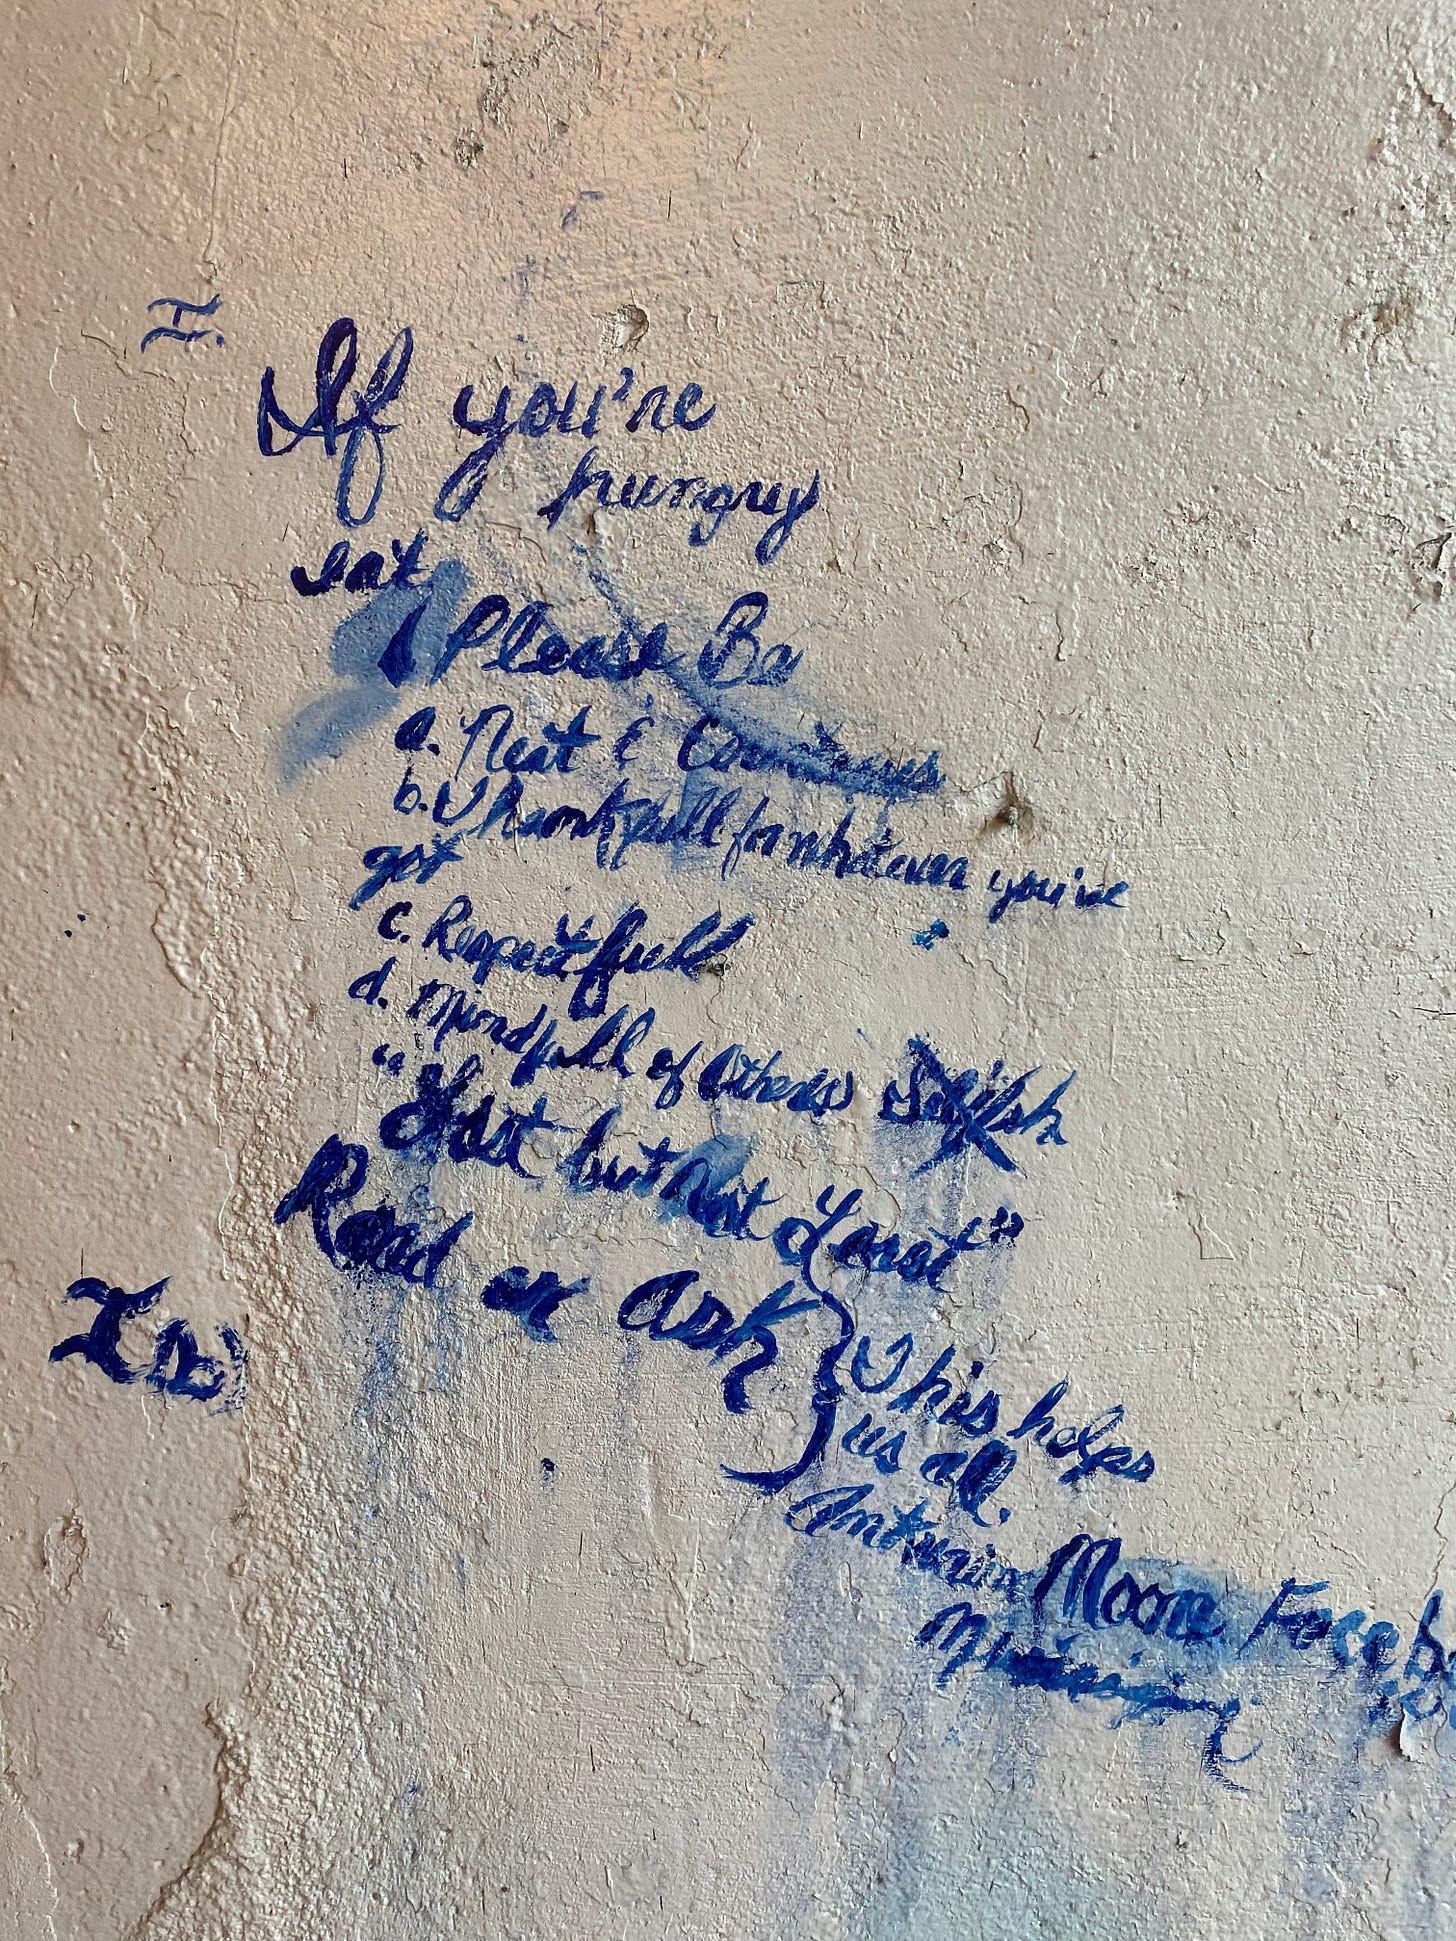 II.
If you're
hungry
eat
Please Be
a. Neat & Courteous
b. Thankfull for whatever you've
got
c. Respectfull
d. Mindfull of Others Selfish
"Last but Not Least"
Read or Ask
This helps
us all.
Moore Faceb